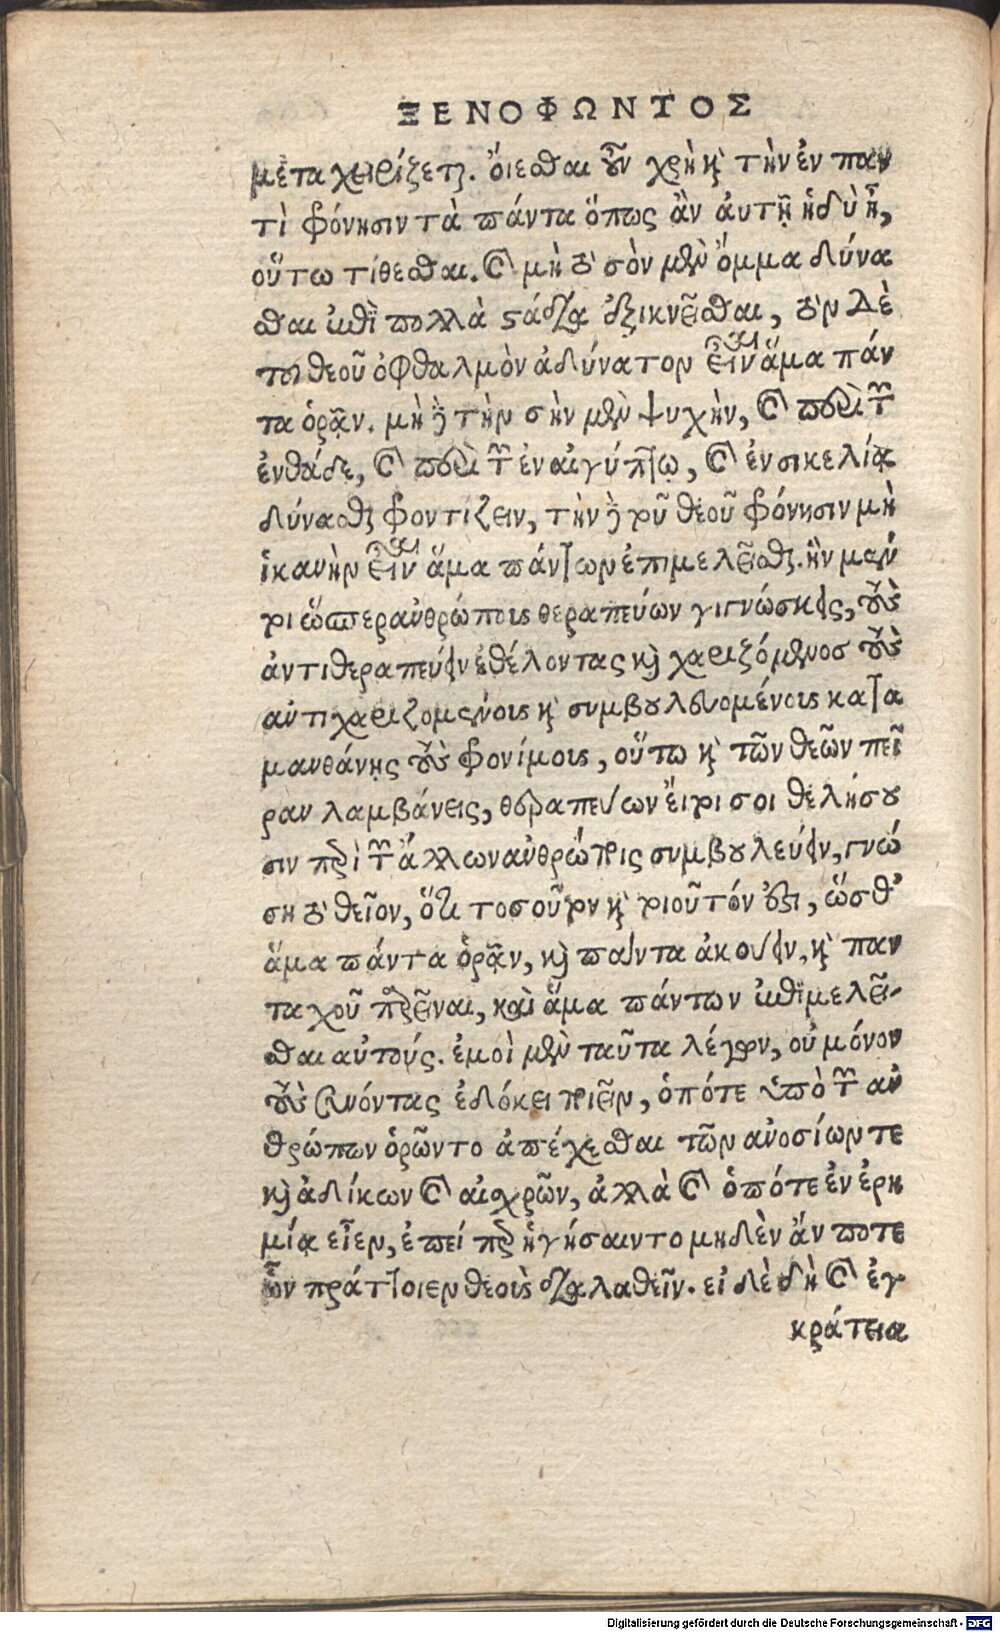 ΞΕΝΟΦΩΝΤΟΣ
μεταχειρίζεται. ὄιεσθαι οὖν χρὴ καὶ τὴν ἐν παν
τὶ φρόνησιν τὰ πάντα ὅπως ἂν ἀυτῇ ἡδὺ ᾖ,
οὕτω τίθεσθαι. καὶ μὴ τὸ σὸν μὲν ὄμμα δύνα
σθαι ἐπὶ πολλὰ στάδια ἐξικνεῖσθαι, τὸν δὲ
τοῦ θεοῦ ὀφθαλμὸν ἀδύνατον εἶναι ἅμα πάν
τα ὁρᾷν. μὴ δὲ τὴν σὴν μὲν ψυχὴν, καὶ περὶ τῶν
ἐνθάδε, καὶ περὶ τῶν ἐν αἰγύπτῳ, καὶ ἐν σικελίᾳ
δύνασθαι φροντίζειν, τὴν δὲ τοῦ θεοῦ φρόνησιν μὴ
ἱκανὴν εἶναι ἅμα πάντων ἐπιμελεῖσθαι. ἢν μέν
τοι ὥσπερ ἀνθρώπους θεραπεύων γιγνώσκεις, τοὺς
ἀντιθεραπεύειν ἐθέλοντας καὶ χαριζόμενος τοὺς
αντιχαριζομένους καὶ συμβουλευομένους κατα
μανθάνῃς τοὺς φρονίμους, οὕτω καὶ τῶν θεῶν πεῖ
ραν λαμβάνεις, θεραπεύων ἔι τοι σοι θελήσου
σιν περὶ τῶν ἄλλων ἀνθρώποις συμβουλεύειν, γνώ
ση τὸ θεῖον, ὅτι τοσοῦτον καὶ τοιοῦτόν ἐστι, ὥσθ'
ἅμα πάντα ὁρᾷν, καὶ πάντα ἀκούειν, καὶ παν
ταχοῦ παρεῖναι, καὶ ἅμα πάντων ἐπιμελεῖ-
σθαι αὐτούς. ἐμοὶ μὲν ταῦτα λέγων, οὐ μόνον
τοὺς συνόντας ἐδόκει ποιεῖν, ὁπότε ὑπὸ τῶν ἀν
θρώπων ὁρῶντο ἀπέχεσθαι τῶν ανοσίων τε
καὶ ἀδίκων καὶ αἰσχρῶν, ἀλλὰ καὶ ὁπότε ἐν ἐρη
μίᾳ εἶεν, ἐπεί περ ἡγήσαιντο μηδὲν ἄν ποτε
ὧν πράττοιεν θεοὺς διαλαθεῖν. εἰ δὲ δὴ καὶ ἐγ
κράτεια
Digitalisierung gefördert durch die Deutsche Forschungsgemeinschaft - DFG